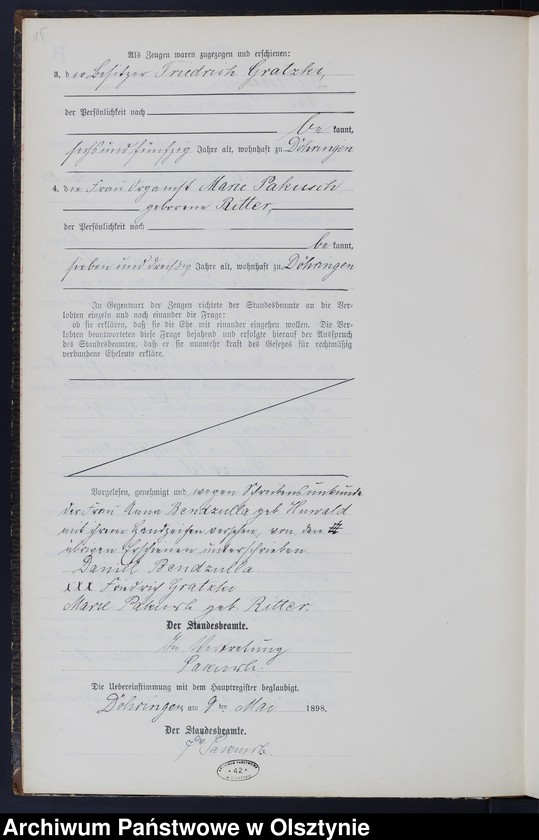 15
Als Zeugen waren zugezogen und erschienen:
3. der Besitzer Friedrich Gratzki,
der Persönlichkeit nach
be kannt,
sechs und fünfzig Jahre alt, wohnhaft zu Döhringen
4. die Frau Organist Marie Pakusch
geborene Ritter,
der Persönlichkeit nach
be kannt,
sieben und dreißig Jahre alt, wohnhaft zu Döhringen
In Gegenwart der Zeugen richtete der Standesbeamte an die Ver-
lobten einzeln und nach einander die Frage:
ob sie erklären, daß sie die Ehe mit einander eingehen wollen. Die Ver-
lobten beantworteten diese Frage bejahend und erfolgte hierauf der Ausspruch
des Standesbeamten, daß er sie nunmehr kraft des Gesetzes für rechtmäßig
verbundene Eheleute erkläre.
Vorgelesen, genehmigt und wegen Schreibensunkunde
der Frau Anna Bendzulla geb Huwald
mit ihrem Handzeichen versehen, von den
übrigen Erschienenen unterschrieben
Daniel Bendzulla
XXX Friedrich Gratzki
Marie Pakusch geb Ritter.
Der Standesbeamte.
In Vertretung
Pakusch.
Die Uebereinstimmung mit dem Hauptregister beglaubigt.
Döhringen, am 9ten Mai 1898.
Der Standesbeamte.
Pakusch.
42
Archiwum Państwowe w Olsztynie